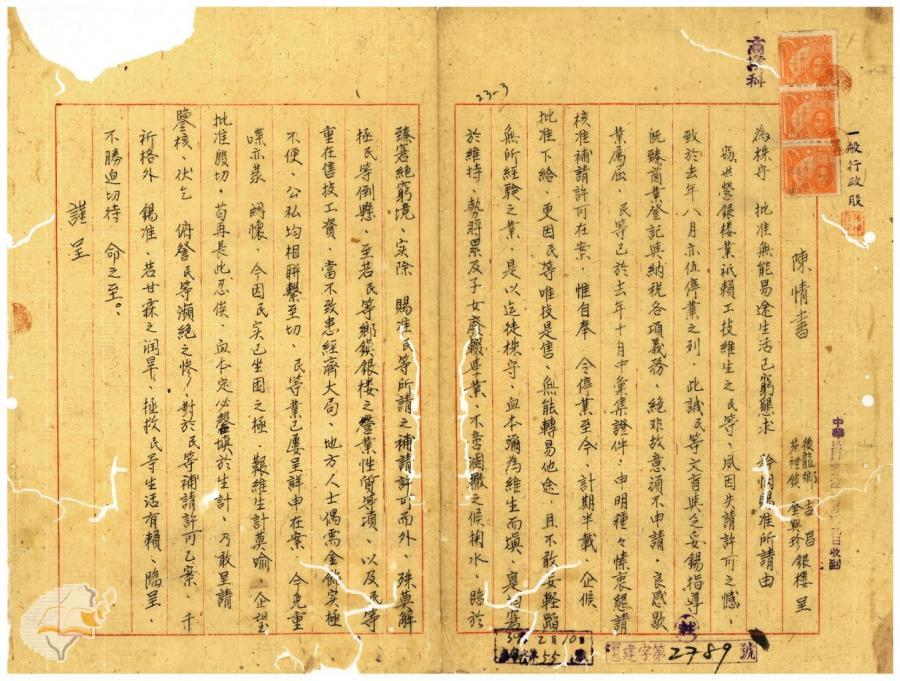 商學科
23-3
一般行政股
陳情書
後龍鄉 吉昌
苑裡鎮 金興珍 銀樓 呈
為株守 批准無能易途生活已窮懇求 矜憫賜准所請由
竊世營銀樓業祇賴工技維生之民等、夙因失請許可之憾、
致於去年八月亦伍停業之列、此誠民等文盲與乏妥錫指導
既臻商業登記與納稅各項義務、絕非故意須不申請、良感歉
業屬屈、民等已於去年十月中彙集證件、申明種々愫衷懇請
核准補請許可在案、惟自奉 令停業至今、計期半載 企候
批准下給、更因民等唯技是售、無能轉易他途、且不敢妄輕蹈
無所經驗之業、是以迄徒株守、血本彌為維生而填、臭
於維持、勢將累及子女廢輟學業、不啻涸轍之候掬水、臨於
臻窘絕窮境、实除 賜准民等所請之補請許可而外、殊莫解
極民等倒懸、至若民等鄉鎮銀樓之營業性質等項、以及民等
重在售技工資、當不致患經濟大局、地方人士偶需金飾实極
不便、公私均相聯繫至切、民等業已屢呈詳申在案 今免重
喋亦蒙 綗懷、今因民实已坐困之極、艱維生計莫喻、企望
批准殷切、苟再長此忍俟、血本定必罄填於生計、乃敢呈請
鑒核、伏乞 俯詧民等瀕絕之慘、對於民等補請許可乙案、千
祈格外 錫准、若甘霖之润旱、拯救民等生活有賴、臨呈、
不勝迫切待 命之至。
謹呈
中華 日收到
39. 2月10
55 號
建字第2789號